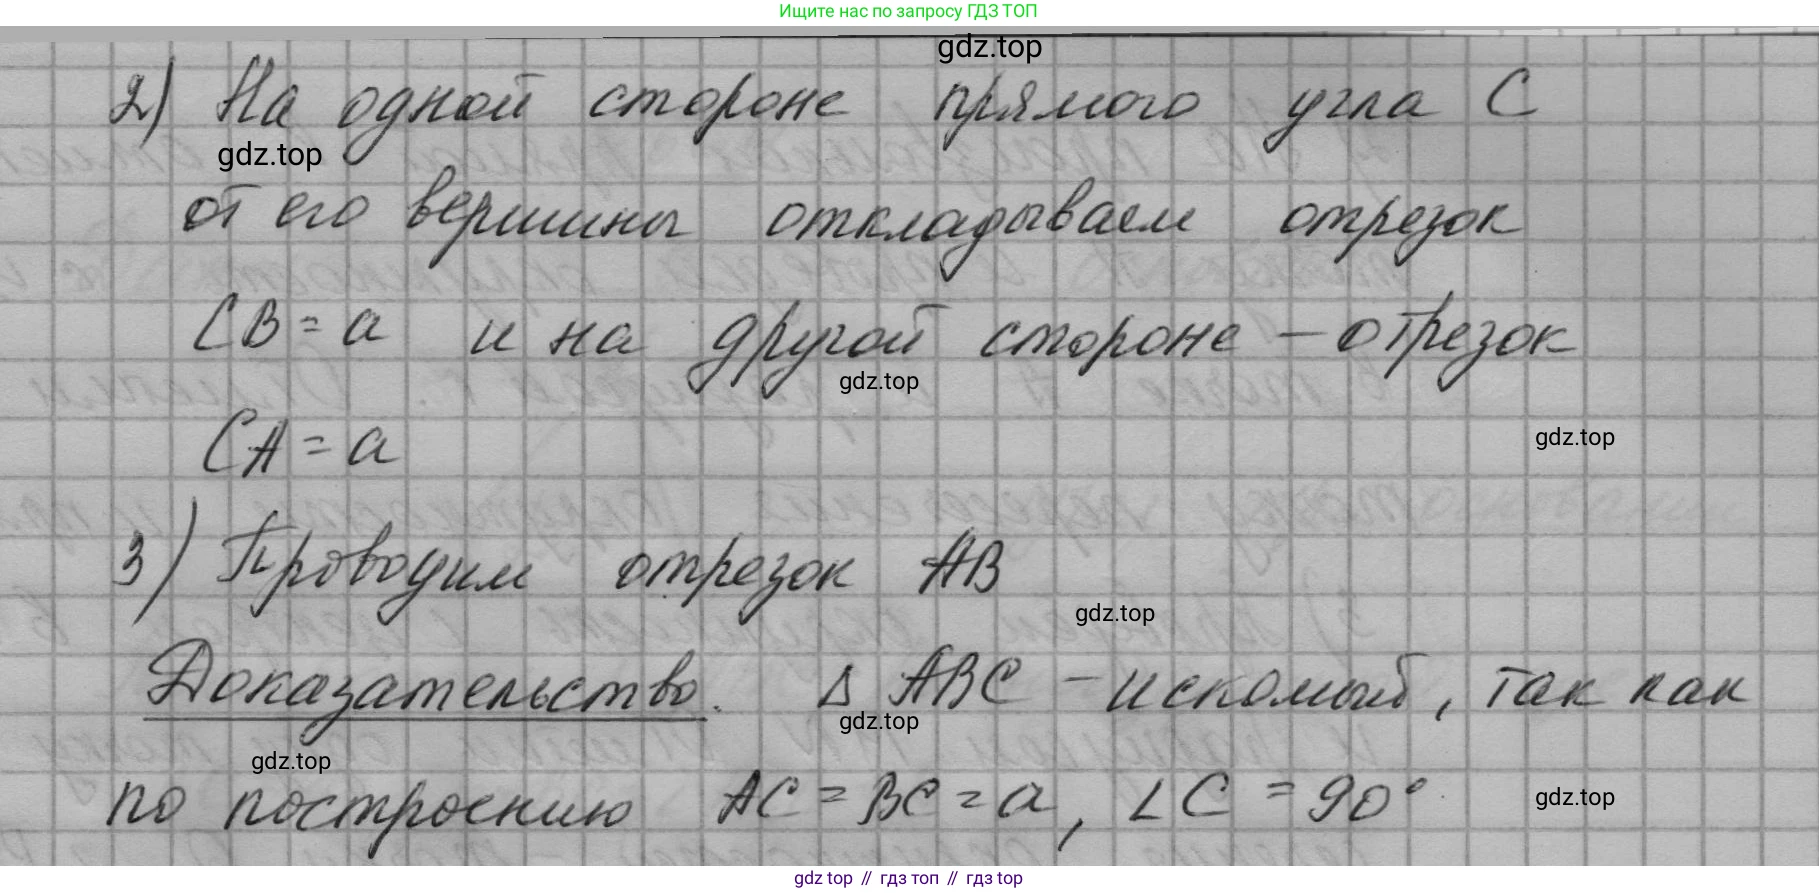 Ищите нас по запросу ГДЗ ТОП
gdz.top
2) На одной стороне прямого угла C
gdz.top
от его вершины откладываем отрезок
CB = a и на другой стороне – отрезок
gdz.top
CA = a
gdz.top
3) Проводим отрезок AB
gdz.top
Доказательство. Δ ABC – искомый, так как
gdz.top
gdz.top
по построению AC = BC = a, ∠C = 90°
gdz.top
gdz top // гдз топ // gdz top